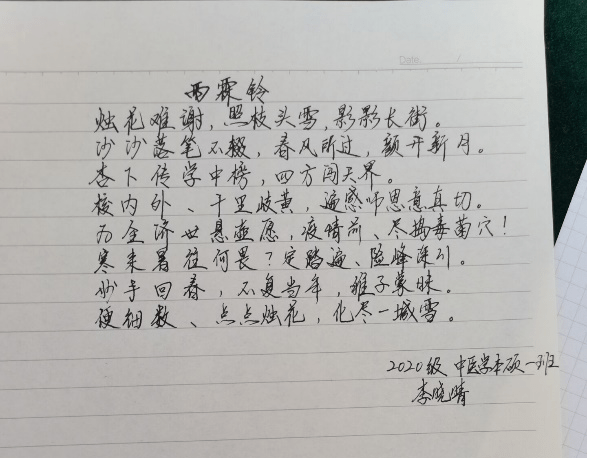 Date. /
雨霖铃
烛花难谢，照枝头雪，影影长街。
沙沙落笔不辍，春风所过，额开新月。
杏下传学中榜，四方闯天界。
校内外、十里歧黄，遍感师恩意真切。
为全济世悬壶愿，夜晴前、尽捣毒菌穴！
寒来暑往何畏？定踏遍、险峰深引。
妙手回春，不复当年，稚子蒙昧。
便细数、点点烛花，化尽一城雪。
2020级 中医学本硕一班
李晓晴